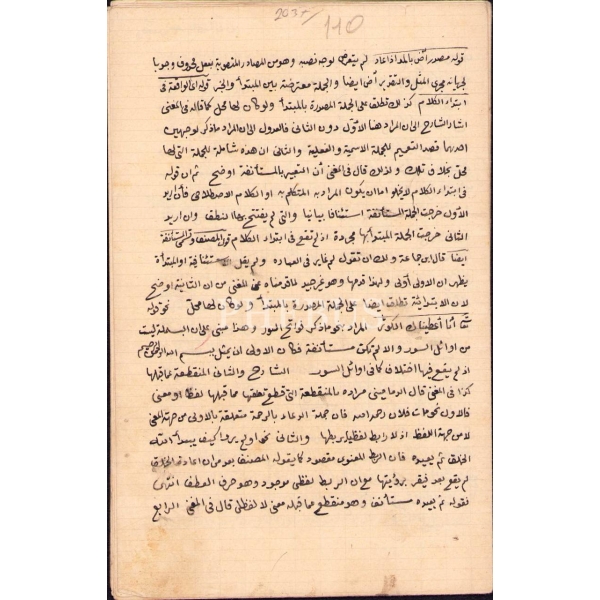 2037
110
قوله مصدر آض بالمد اذا عاد لم يتعرض لوجه نصبه وهو من المصادر المنصوبة بفعل محذوف وجوبا
لجريانه مجرى المثل والتقدير آض ايضا والجملة معترضة بين المبتدأ والخبر قوله اى الواقعة فى
ابتداء الكلام كذلك تطلق على الجملة المصدرة بالمبتدأ ولو كان لها محل كما قاله فى المغنى
اشار الشارح الى ان المراد هنا الأول دون الثانى فالعدول الى ان المراد ما ذكر لوجهين
احدهما قصد التعميم للجملة الاسمية والفعلية والثانى ان هذه شاملة للجملة التى لها
محل بخلاف تلك ولذلك قال فى المغنى أن التعبير بالمستأنفة اوضح ثم ان قوله
فى ابتداء الكلام لا يخلوا اما ان يكون المراد به المتكلم به او الكلام الاصطلاحى فأن اريد
الأول خرجت الجملة المستأنفة استئنافا بيانيا والتى لم يفتتح بها النطق وان اريد
الثانى خرجت الجملة المبتدأ بها مجردة اذ لم تقع فى ابتداء الكلام قول المصنف وتسمى المستأنفة
ايضا قال ابن جماعة ولك ان تقول لم غاير فى العبارة ولم يقل مستئنافية او المبتدأة
يظهر ان الاولى أولى ولهذا قدمها وهو غير جيد لما قدمناه عن المغنى من ان الثانية اوضح
لان الابتدائية تطلق ايضا على الجملة المصدرة بالمبتدأ ولو كان لها محل نحو قوله
تعالى أنا أعطيناك الكوثر المراد بنحو ما ذكر فواتح السور وهذا مبنى على ان البسملة ليست
من اوائل السور والا لم تكن مستأنفة فكان الاولى ان يمثل ببسم الله الرحمن الرحيم
اذ لم يقع فيها اختلاف كما فى اوائل السور الشارح والثانى المنقطعة عما قبلها
كذا فى المغنى قال الدمامينى مراده بالمنقطعة التى قطع تعلقها مما قبلها لفظا او معنى
فالاول نحو مات فلان رحمه الله فان جملة الدعاء بالرحمة متعلقة بالاولى من جهة المعنى
لا من جهة اللفظ اذ لا رابط لفظيا يربطها والثانى نحو اولم يروا كيف يبدأ الله
الخلق ثم يعيده فان الربط المعنوى مقصود كما يقوله المصنف بعد من ان اعادة الخلق
لم يقع بعد فيقرر برؤيتها مع ان الربط لفظى موجود وهو حرف العطف انتهى
فقوله ثم يعيده مستأنف وهو منقطع عما قبله معنى لا لفظا قال فى المغنى الرابع
PHEBUS